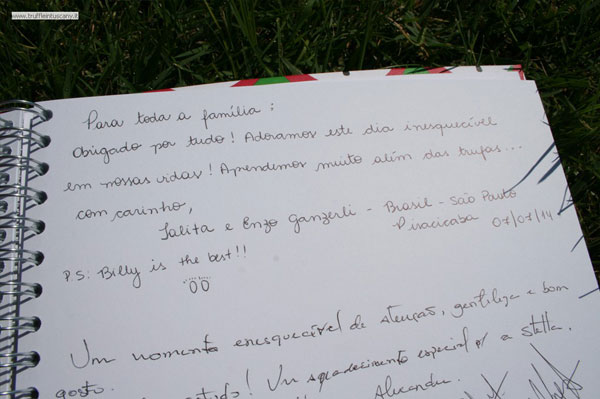 www.truffleintuscany.it
Para toda a família:
Obrigado por tudo! Adoramos este dia inesquecível
em nossas vidas! Aprendemos muito além das trufas...
com carinho,
Talita e Enzo Ganzerli - Brasil - São Paulo
Piracicaba 07/07/14
P.S: Billy is the best!!
Um momento enesquecível de atenção, gentileza e bom
gosto. Um agradecimento especial p/ a stella.
Alexandre.